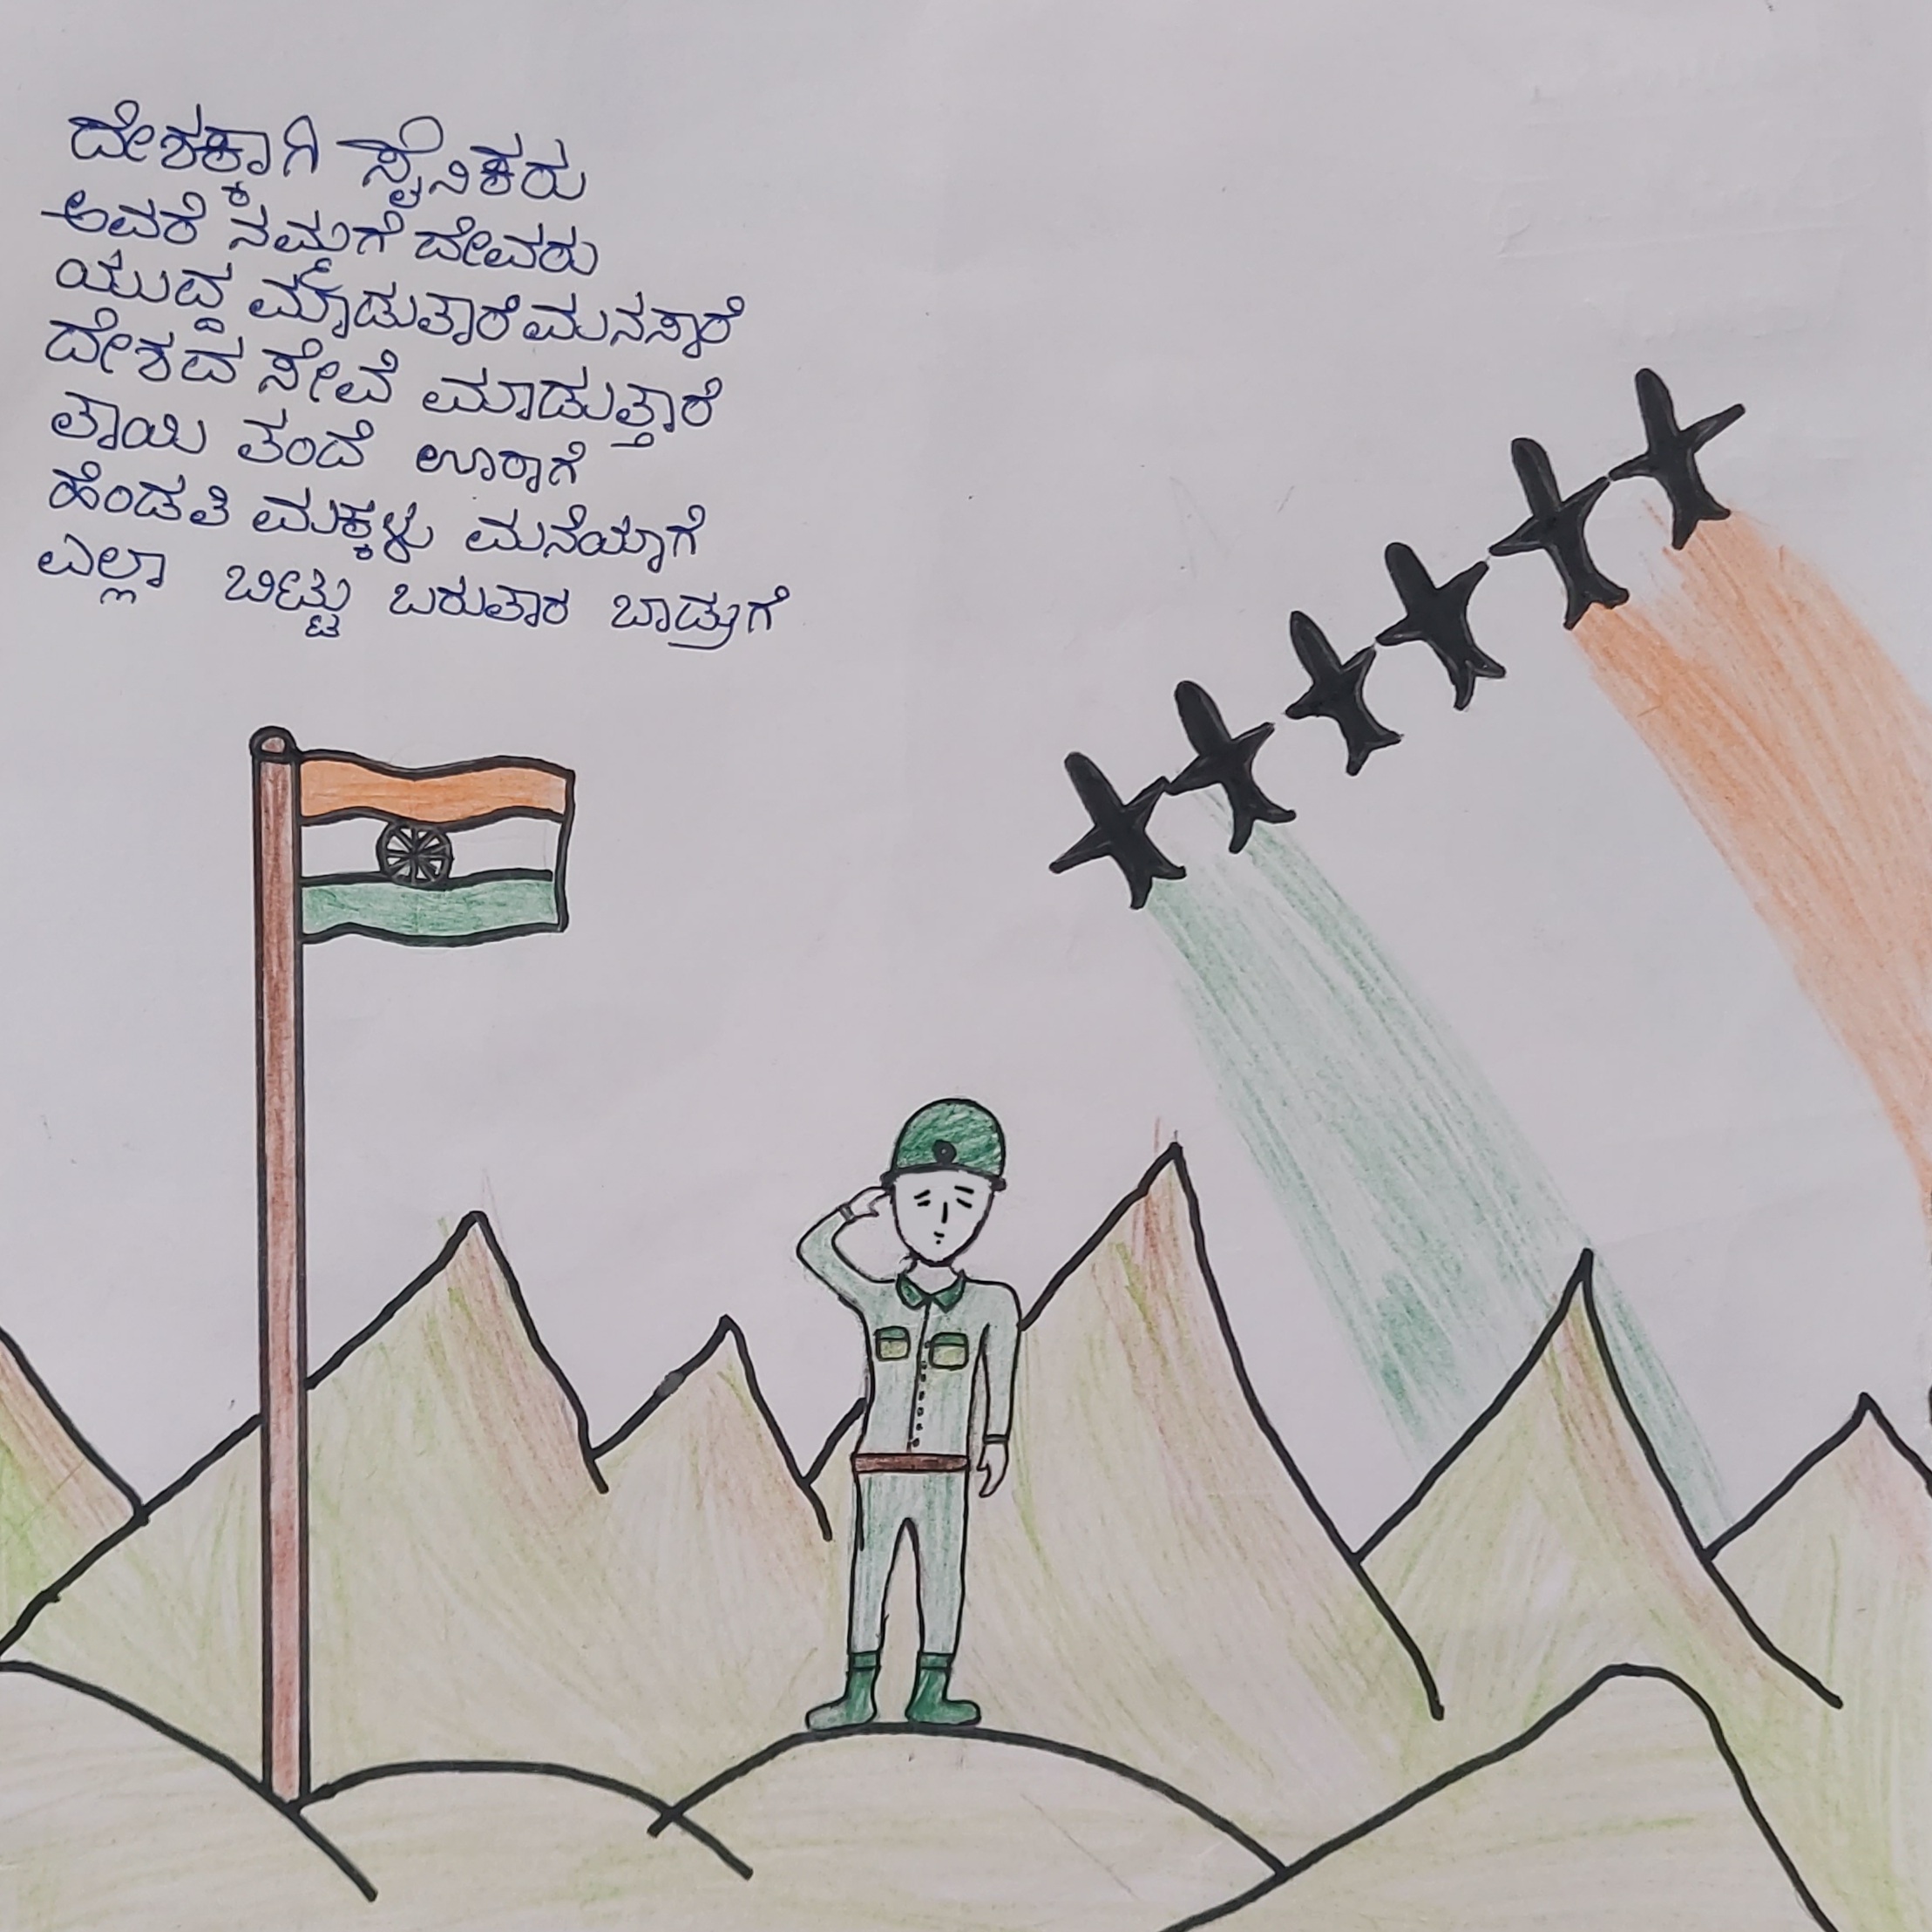 ದೇಶಕ್ಕಾಗಿ ಸೈನಿಕರು
ಅವರೆ ನಮ್ಮಗೆ ದೇವರು
ಯುದ್ದ ಮಾಡುತಾರೆ ಮನಸಾರೆ
ದೇಶದ ಸೇವೆ ಮಾಡುತ್ತಾರೆ
ತಾಯಿ ತಂದೆ ಊರಾಗೆ
ಹೆಂಡತಿ ಮಕ್ಕಳು ಮನೆಯಾಗೆ
ಎಲ್ಲಾ ಬಿಟ್ಟು ಬರುತಾರ ಬಾಡ್ರುಗೆ